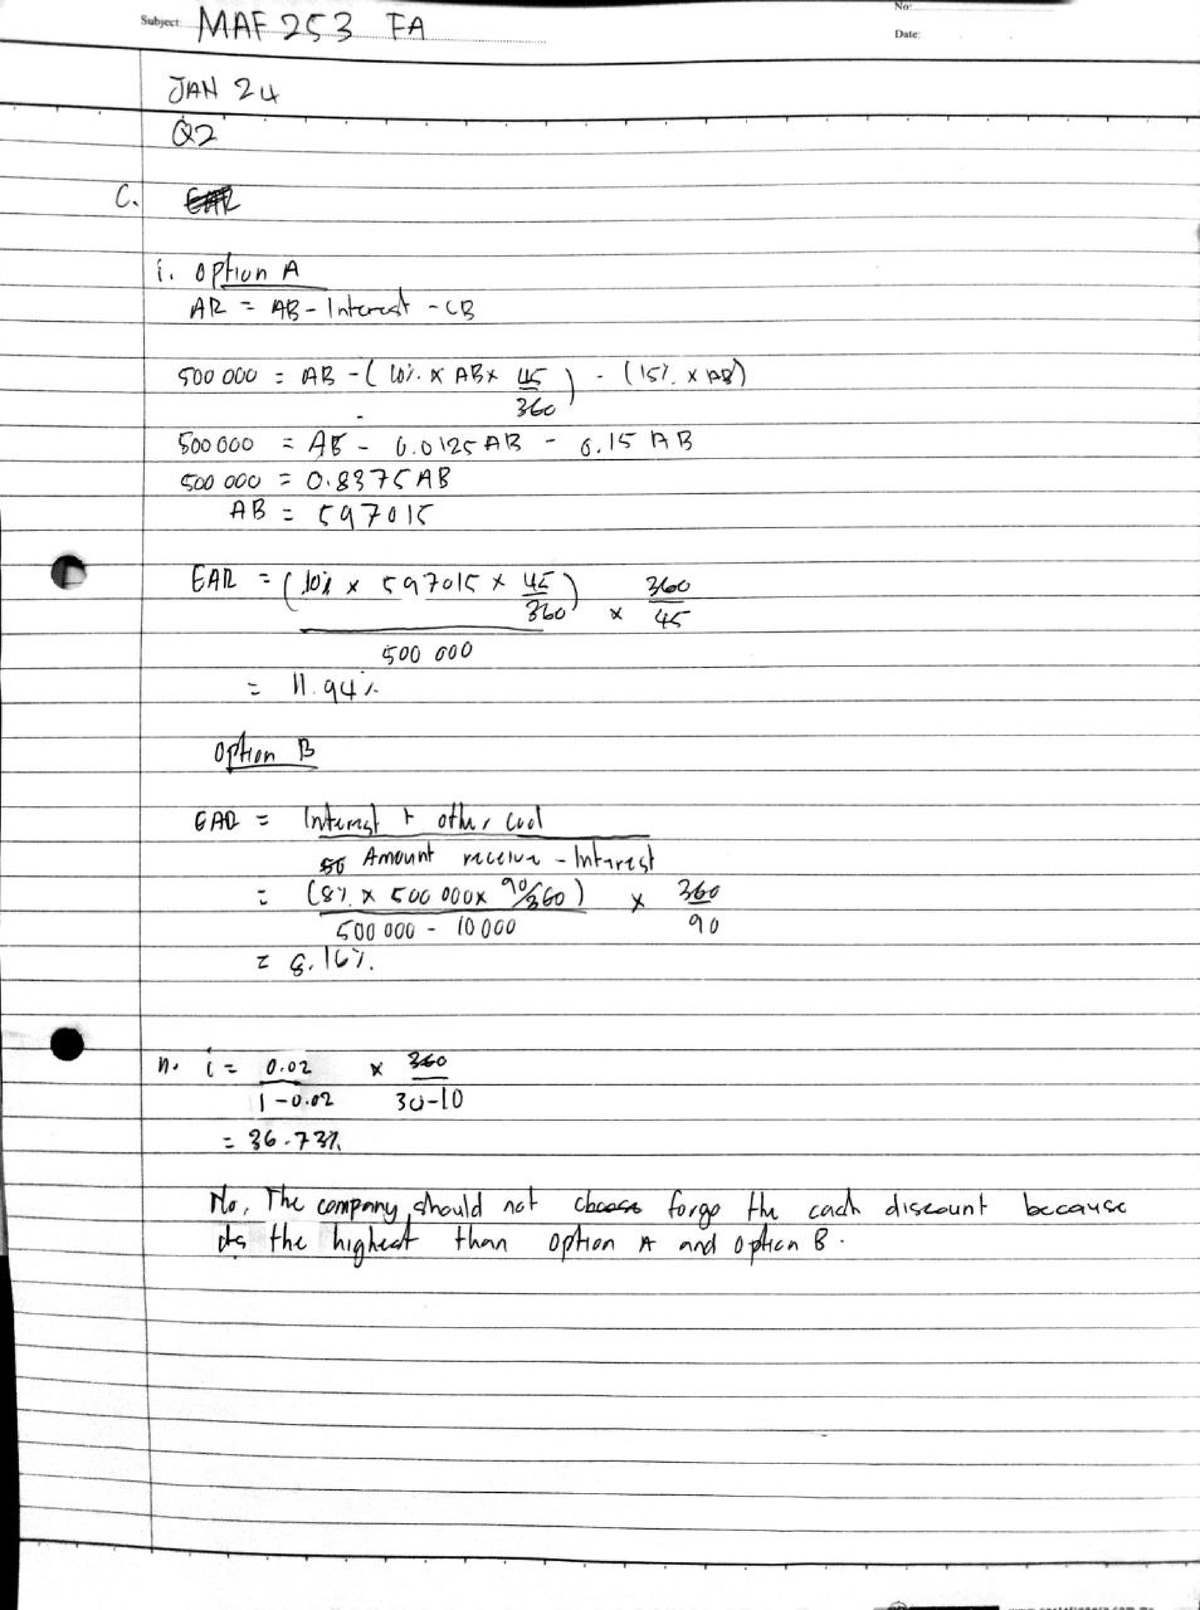 No:
Subject: MAF 253 FA
Date:
JAN 24
Q2
C.
i. Option A
AR = AB - Interest - CB
500 000 = AB - ( 10% x AB x 45/360 ) - (15% x AB)
500 000 = AB - 0.0125 AB - 0.15 AB
500 000 = 0.8375 AB
AB = 597015
EAR = ( 10% x 597015 x 45/360 ) x 360/45
500 000
= 11.94%
Option B
EAR = Interest + other cost
Amount receive - Interest
= (8% x 500 000 x 90/360 ) x 360/90
500 000 - 10 000
= 8.16%.
ii. i = 0.02 x 360
1 - 0.02 30-10
= 36.73%
No, The company should not forgo the cash discount because
its the highest than option A and option B.